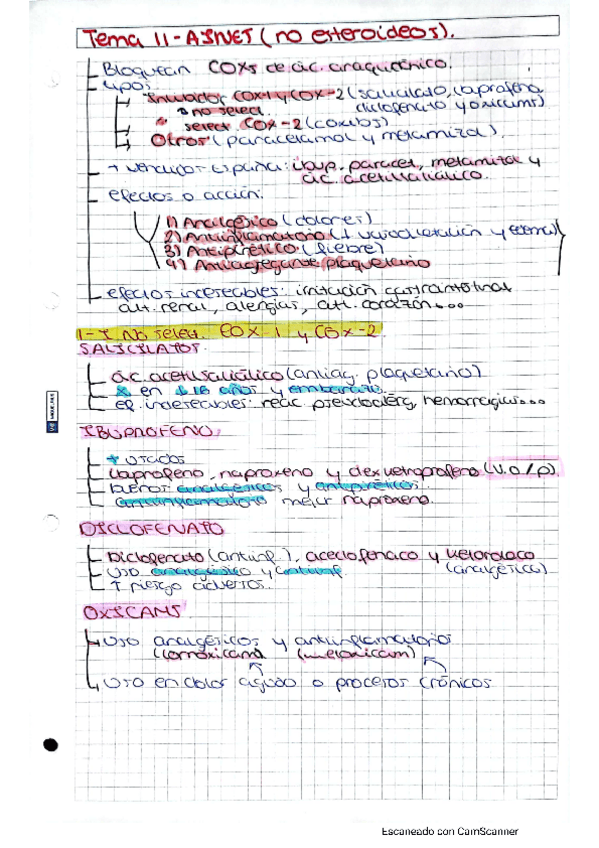 Tema 11 - AINES (no esteroideos).
Bloquean COXs de ác. araquidónico.
tipos:
Inhibidor COX-1 y COX-2 (salicilato, ibuprofeno,
no select. diclofenato y oxicams).
select. COX-2 (coxibs)
Otros (paracetamol y metamizol)
+ vendidos España: ibup, paracet, metamizol y
ác. acetilsalicílico.
efectos o acción:
1) Analgésico (dolores)
2) Antiinflamatorio (↓ vasodilatación y edema)
3) Antipirético (fiebre)
4) Antiagregante plaquetario
efectos indeseables: irritación gastrointestinal
alt. renal, alergias, alt. corazón...
1- I No select. COX 1 y COX-2
SALICILATOS
ác. acetilsalicílico (antiag. plaquetario)
X en ↓ 16 años y embarazo.
ef. indeseables: reac. pseudoalérg, hemorragias...
IBUPROFENO
+ usados
Ibuprofeno, naproxeno y dexketoprofeno (V.O/P)
buenos analgésicos y antipiréticos.
antiinflamatorio mejor naproxeno.
DICLOFENATO
Diclofenato (antiinf.), aceclofenaco y ketorolaco
uso analgésico y antiinf. (analgésico)
↑ riesgo adversos.
OXICAMS
uso analgésicos y antiinflamatorios
(lornoxicam) (meloxicam)
uso en dolor agudo o procesos crónicos
Escaneado con CamScanner